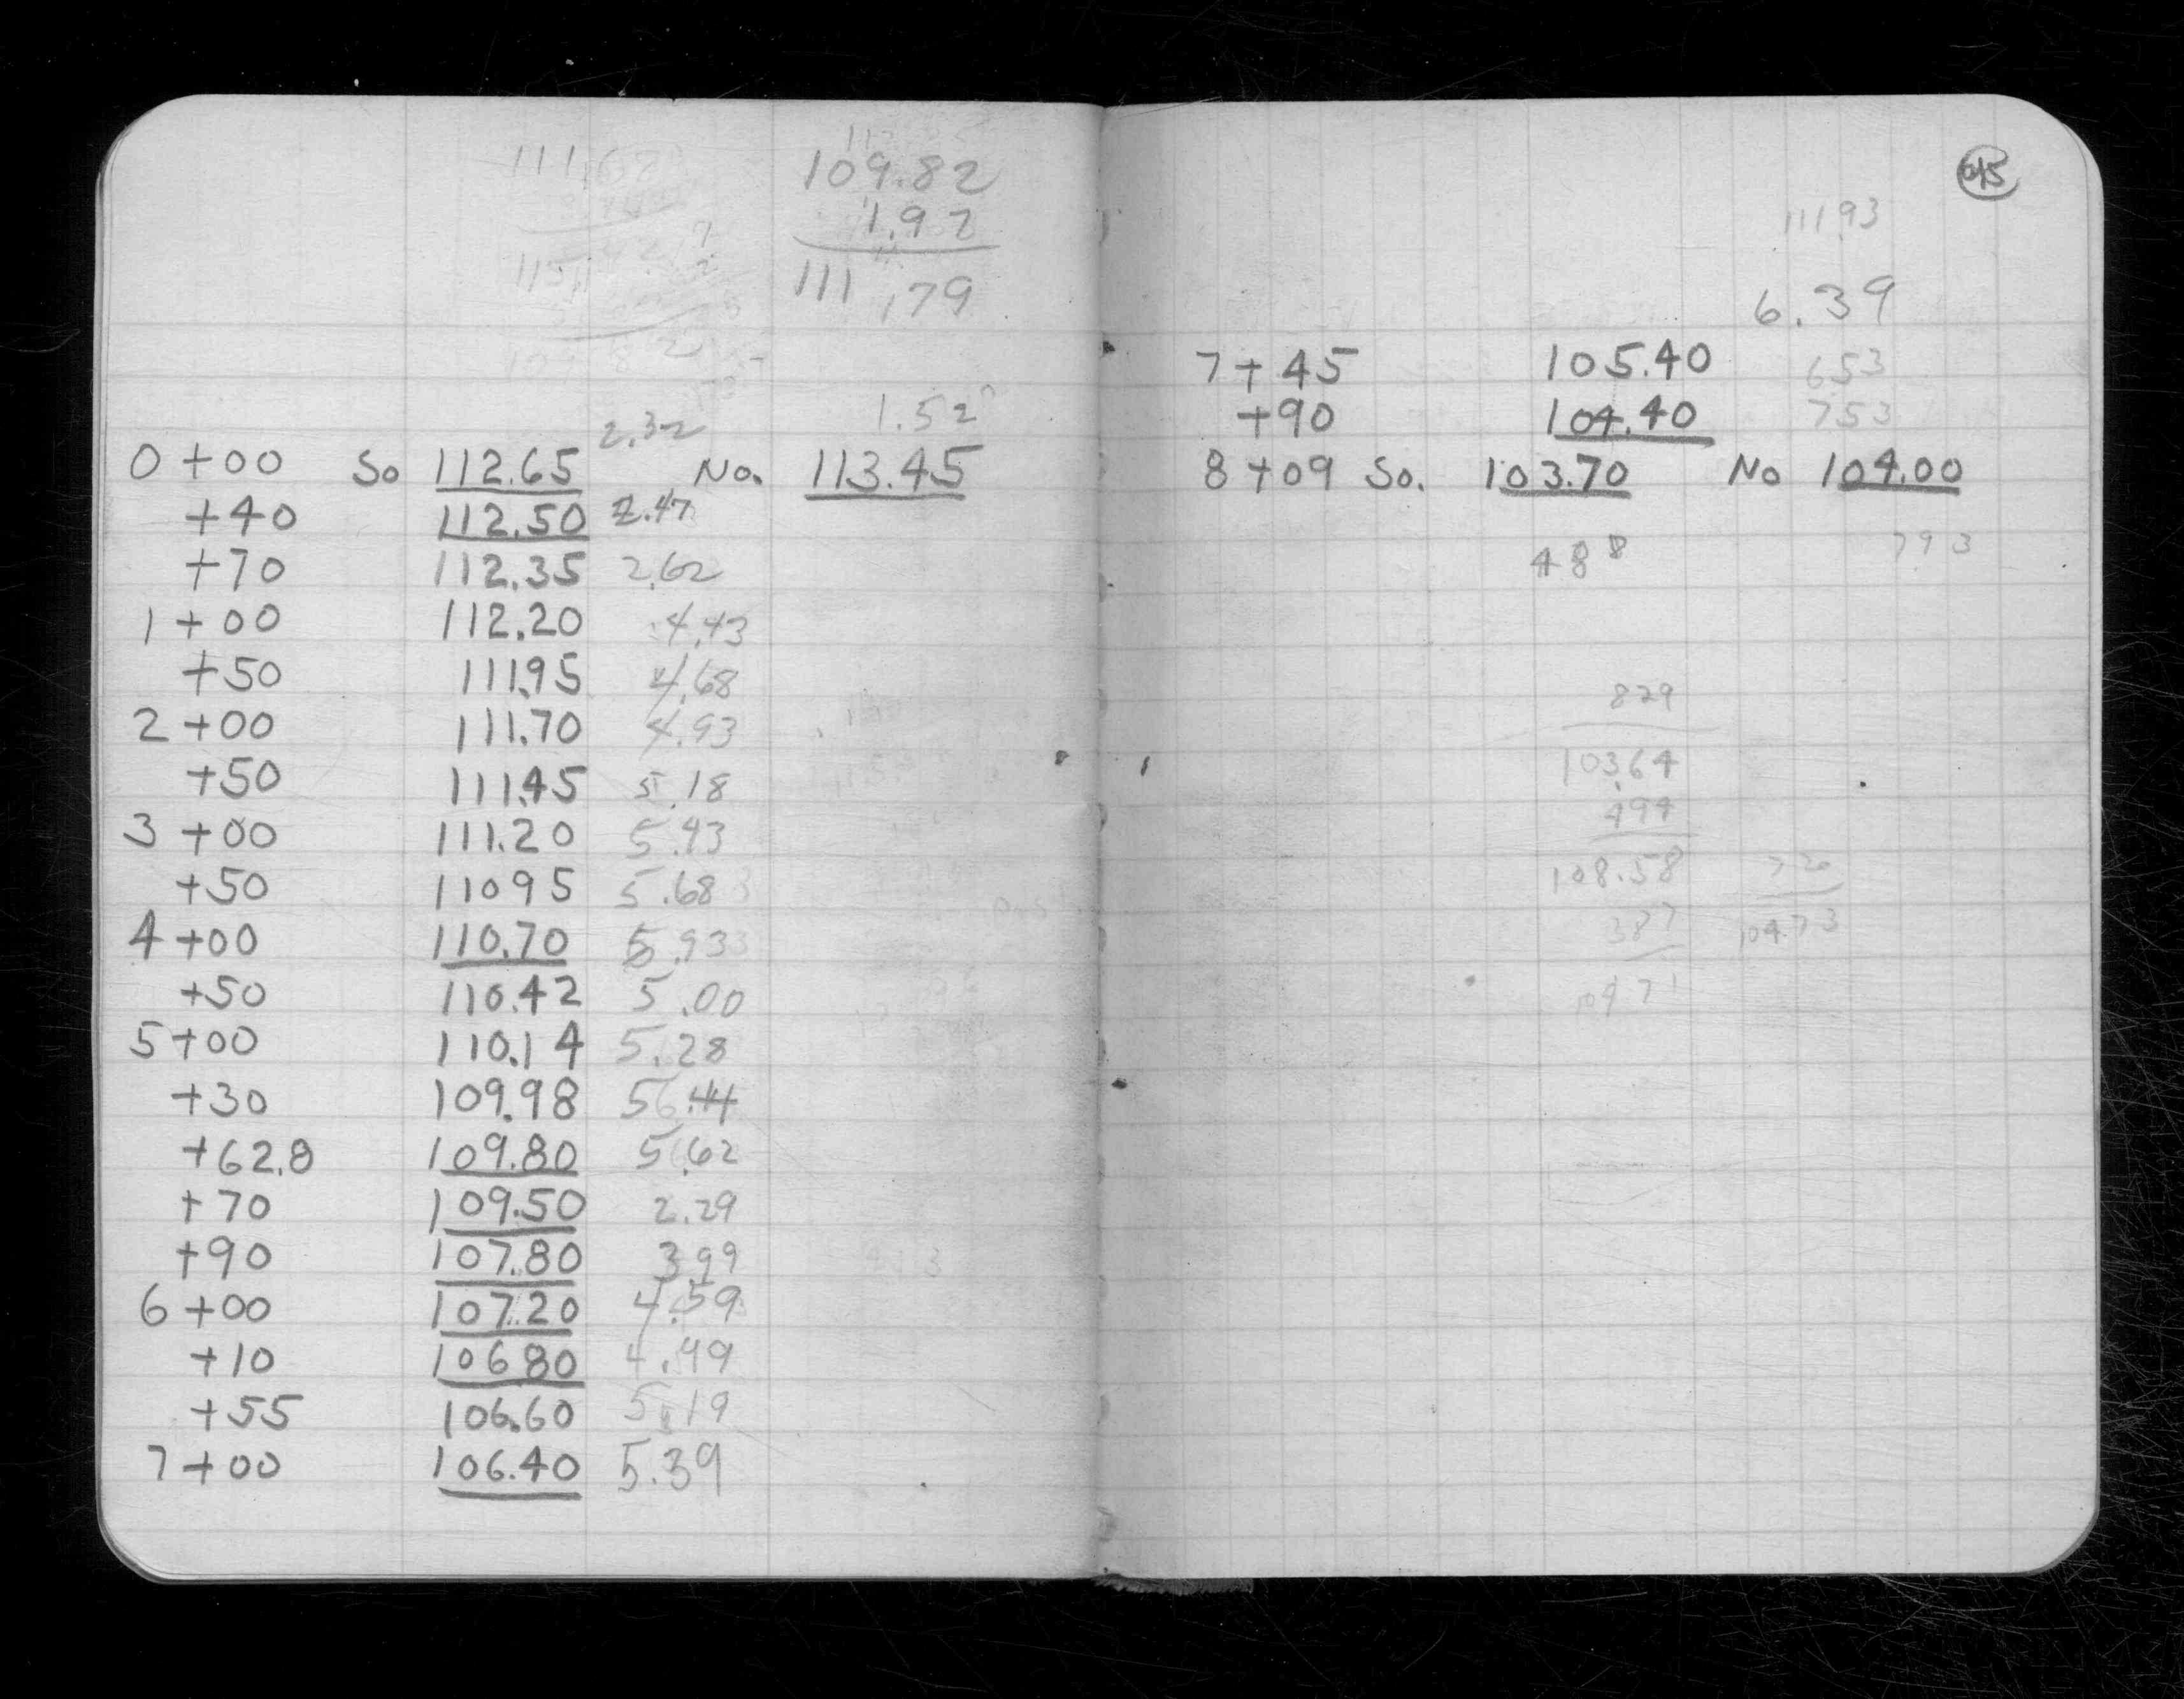 109.82
1.97
111.79
1.52
2.32
0+00 So 112.65 No. 113.45
+40 112.50 2.47
+70 112.35 2.62
1+00 112.20 4.43
+50 111.95 4.68
2+00 111.70 4.93
+50 111.45 5.18
3+00 111.20 5.43
+50 110 95 5.68
4+00 110.70 5.93
+50 110.42 5.00
5+00 110.14 5.28
+30 109.98 5.44
+62.8 109.80 5.62
+70 109.50 2.29
+90 107.80 3.99
6+00 107.20 4.59
+10 106 80 4.99
+55 106.60 5.19
7+00 106.40 5.39
111.93
6.39
7+45 105.40 653
+90 104.40 753
8+09 So. 103.70 No 104.00
488 793
829
103.64
494
108.58
387 104.73
104.71